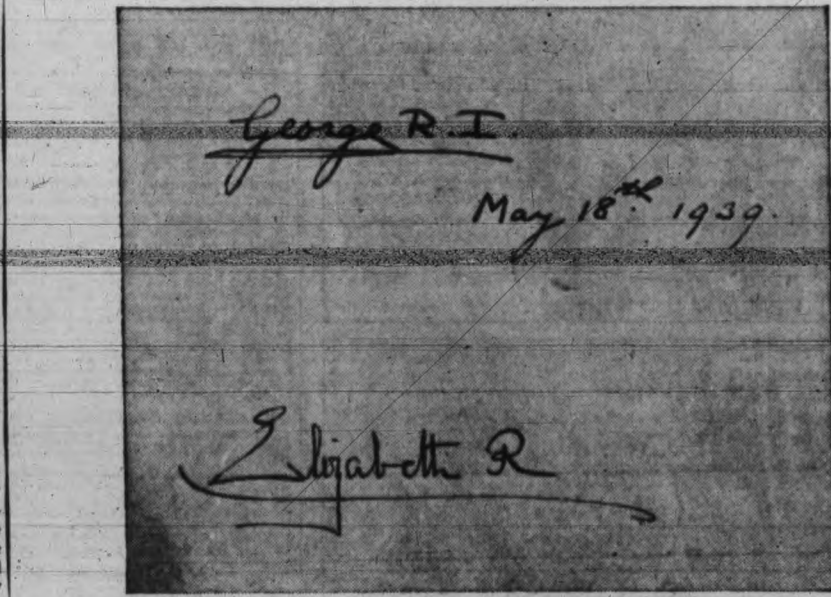 George R.I.
May 18th 1939.
Elizabeth R